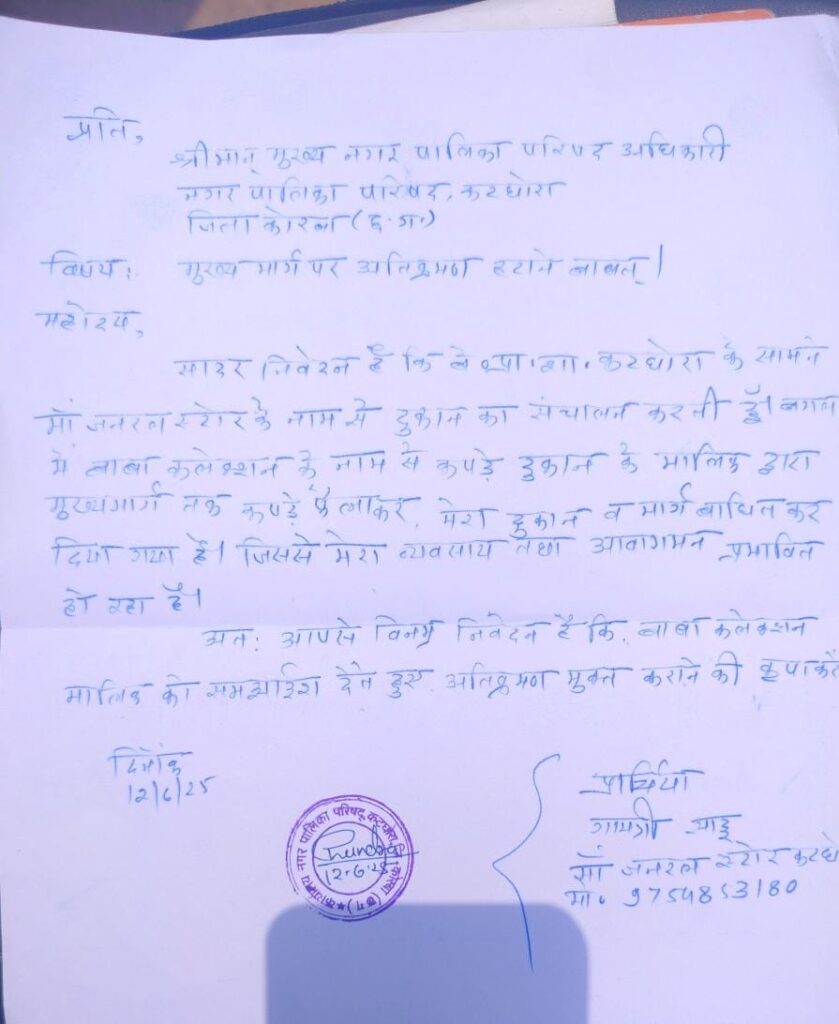 प्रति,
श्रीमान् मुख्य नगर पालिका परिषद अधिकारी
नगर पालिका परिषद, कटघोरा
जिला कोरबा (छ.ग.)
विषय: मुख्य मार्ग पर अतिक्रमण हटाने बाबत्।
महोदय,
सादर निवेदन है कि शा. कटघोरा के सामने
माँ जनरल स्टोर के नाम से दुकान का संचालन करती हूँ। बगल
में बाबा कलेक्शन के नाम से कपड़े दुकान के मालिक द्वारा
मुख्यमार्ग तक कपड़े फैलाकर, मेरा दुकान व मार्ग बाधित कर
दिया गया है। जिससे मेरा व्यवसाय तथा आवागमन प्रभावित
हो रहा है।
अत: आपसे विनम्र निवेदन है कि, बाबा कलेक्शन
मालिक को समझाईश देते हुए अतिक्रमण मुक्त कराने की कृपा करें
दिनाँक
12/6/25
प्रार्थिया
साहू
माँ जनरल स्टोर कटघो
मो. 9754853180
कार्यालय नगर पालिका परिषद्, कटघोरा, कोरबा (छ.ग.)
12-6-25